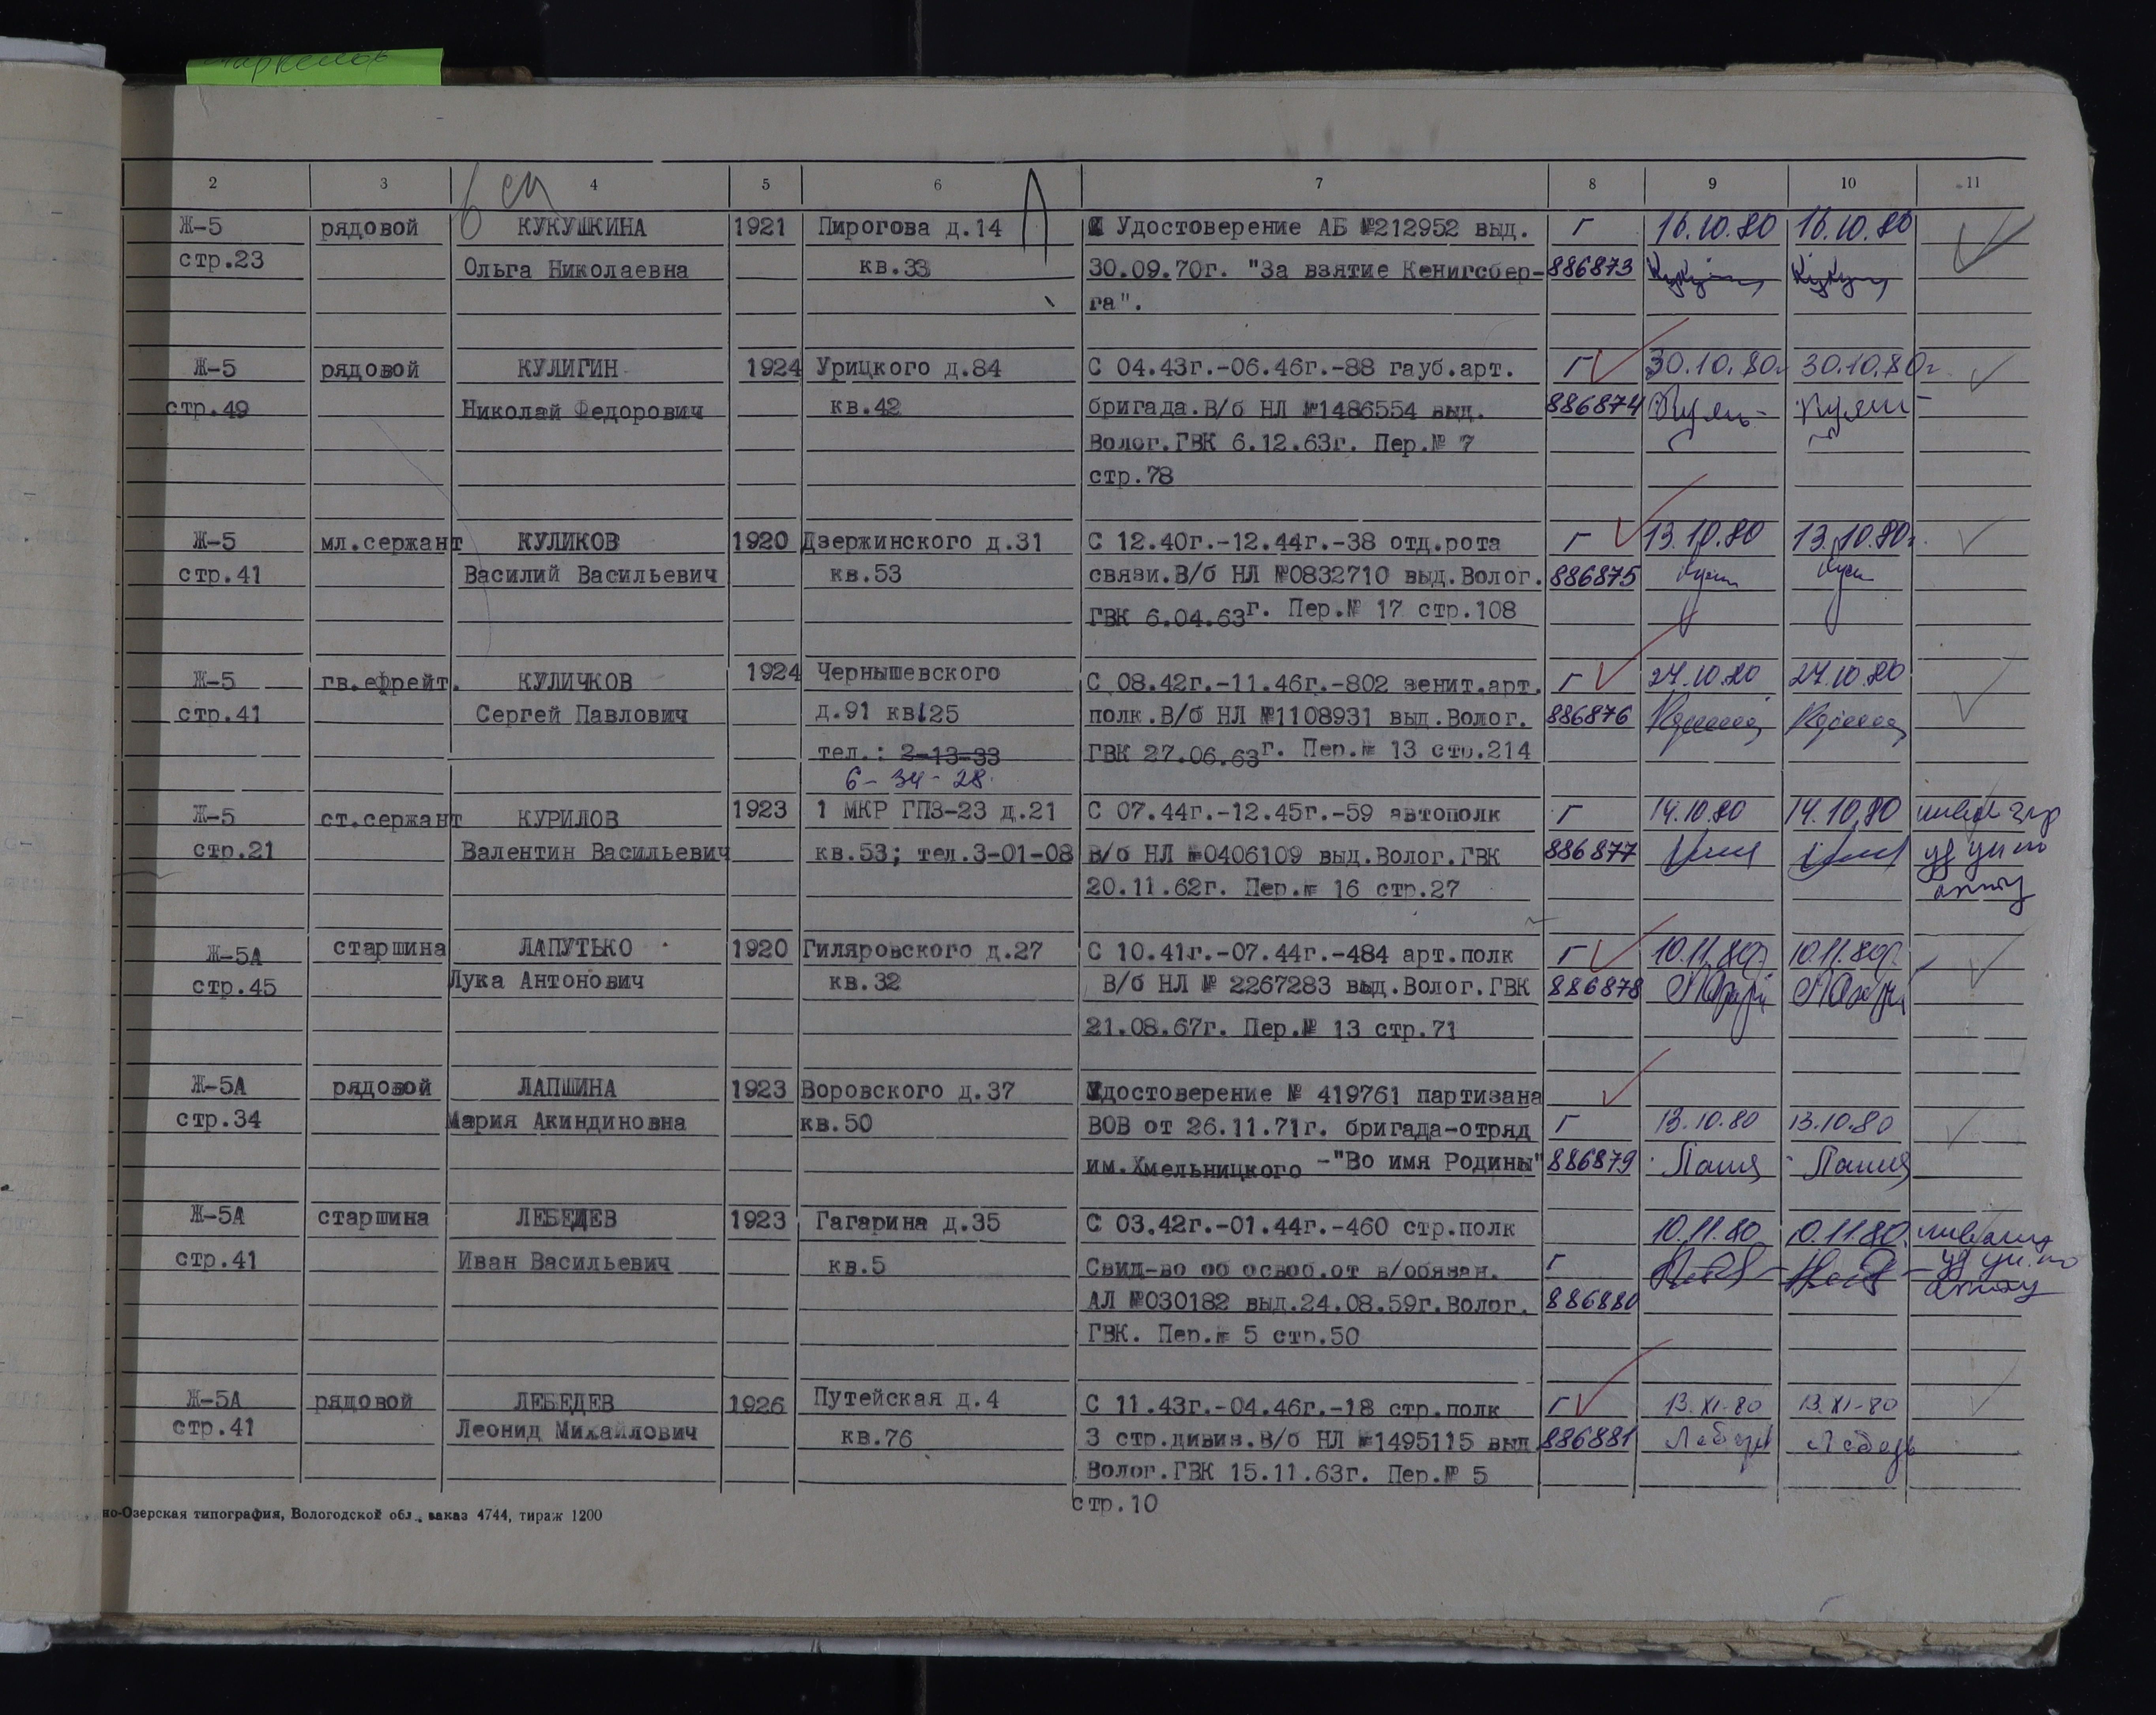 2 3 4 5 6 7 8 9 10 11
Ж-5 рядовой КУКУШКИНА 1921 Пирогова д.14 Удостоверение АБ №212952 выд. Г 16.10.80 16.10.80
стр.23 Ольга Николаевна кв.33 30.09.70г. "За взятие Кенигсбер- 886873
га".
Ж-5 рядовой КУЛИГИН 1924 Урицкого д.84 С 04.43г.-06.46г.-88 гауб.арт. Г 30.10.80г 30.10.80г.
стр.49 Николай Федорович кв.42 бригада.В/б НЛ №1486554 выд. 886874
Волог.ГВК 6.12.63г. Пер.№ 7
стр.78
Ж-5 мл.сержант КУЛИКОВ 1920 Дзержинского д.31 С 12.40г.-12.44г.-38 отд.рота Г 13.10.80 13.10.80г.
стр.41 Василий Васильевич кв.53 связи.В/б НЛ №0832710 выд.Волог. 886875
ГВК 6.04.63г. Пер.№ 17 стр.108
Ж-5 гв.ефрейт. КУЛИЧКОВ 1924 Чернышевского С 08.42г.-11.46г.-802 зенит.арт. Г 27.10.80 27.10.80
стр.41 Сергей Павлович д.91 кв125 полк.В/б НЛ №1108931 выд.Волог. 886876
тел.: 2-13-33 ГВК 27.06.63г. Пер.№ 13 стр.214
6-34-28.
Ж-5 ст.сержант КУРИЛОВ 1923 1 МКР ГПЗ-23 д.21 С 07.44г.-12.45г.-59 автополк Г 14.10.80 14.10.80
стр.21 Валентин Васильевич кв.53; тел.3-01-08 В/б НЛ №0406109 выд.Волог.ГВК 886877
20.11.62г. Пер.№ 16 стр.27
Ж-5А старшина ЛАПУТЬКО 1920 Гиляровского д.27 С 10.41г.-07.44г.-484 арт.полк Г 10.11.80г. 10.11.80г.
стр.45 Лука Антонович кв.32 В/б НЛ № 2267283 выд.Волог.ГВК 886878
21.08.67г. Пер.№ 13 стр.71
Ж-5А рядовой ЛАПШИНА 1923 Воровского д.37 Удостоверение № 419761 партизана
стр.34 Мария Акиндиновна кв.50 ВОВ от 26.11.71г. бригада-отряд Г 13.10.80 13.10.80
им.Хмельницкого -"Во имя Родины" 886879
Ж-5А старшина ЛЕБЕДЕВ 1923 Гагарина д.35 С 03.42г.-01.44г.-460 стр.полк 10.11.80 10.11.80.
стр.41 Иван Васильевич кв.5 Свид-во об освоб.от в/обязан. Г
АЛ №030182 выд.24.08.59г.Волог. 886880
ГВК. Пер.№ 5 стр.50
Ж-5А рядовой ЛЕБЕДЕВ 1926 Путейская д.4 С 11.43г.-04.46г.-18 стр.полк Г 13.XI-80 13.XI-80
стр.41 Леонид Михайлович кв.76 3 стр.дивиз.В/б НЛ №1495115 выд 886881
Волог.ГВК 15.11.63г. Пер.№ 5
стр.10
но-Озерская типография, Вологодской обл., заказ 4744, тираж 1200